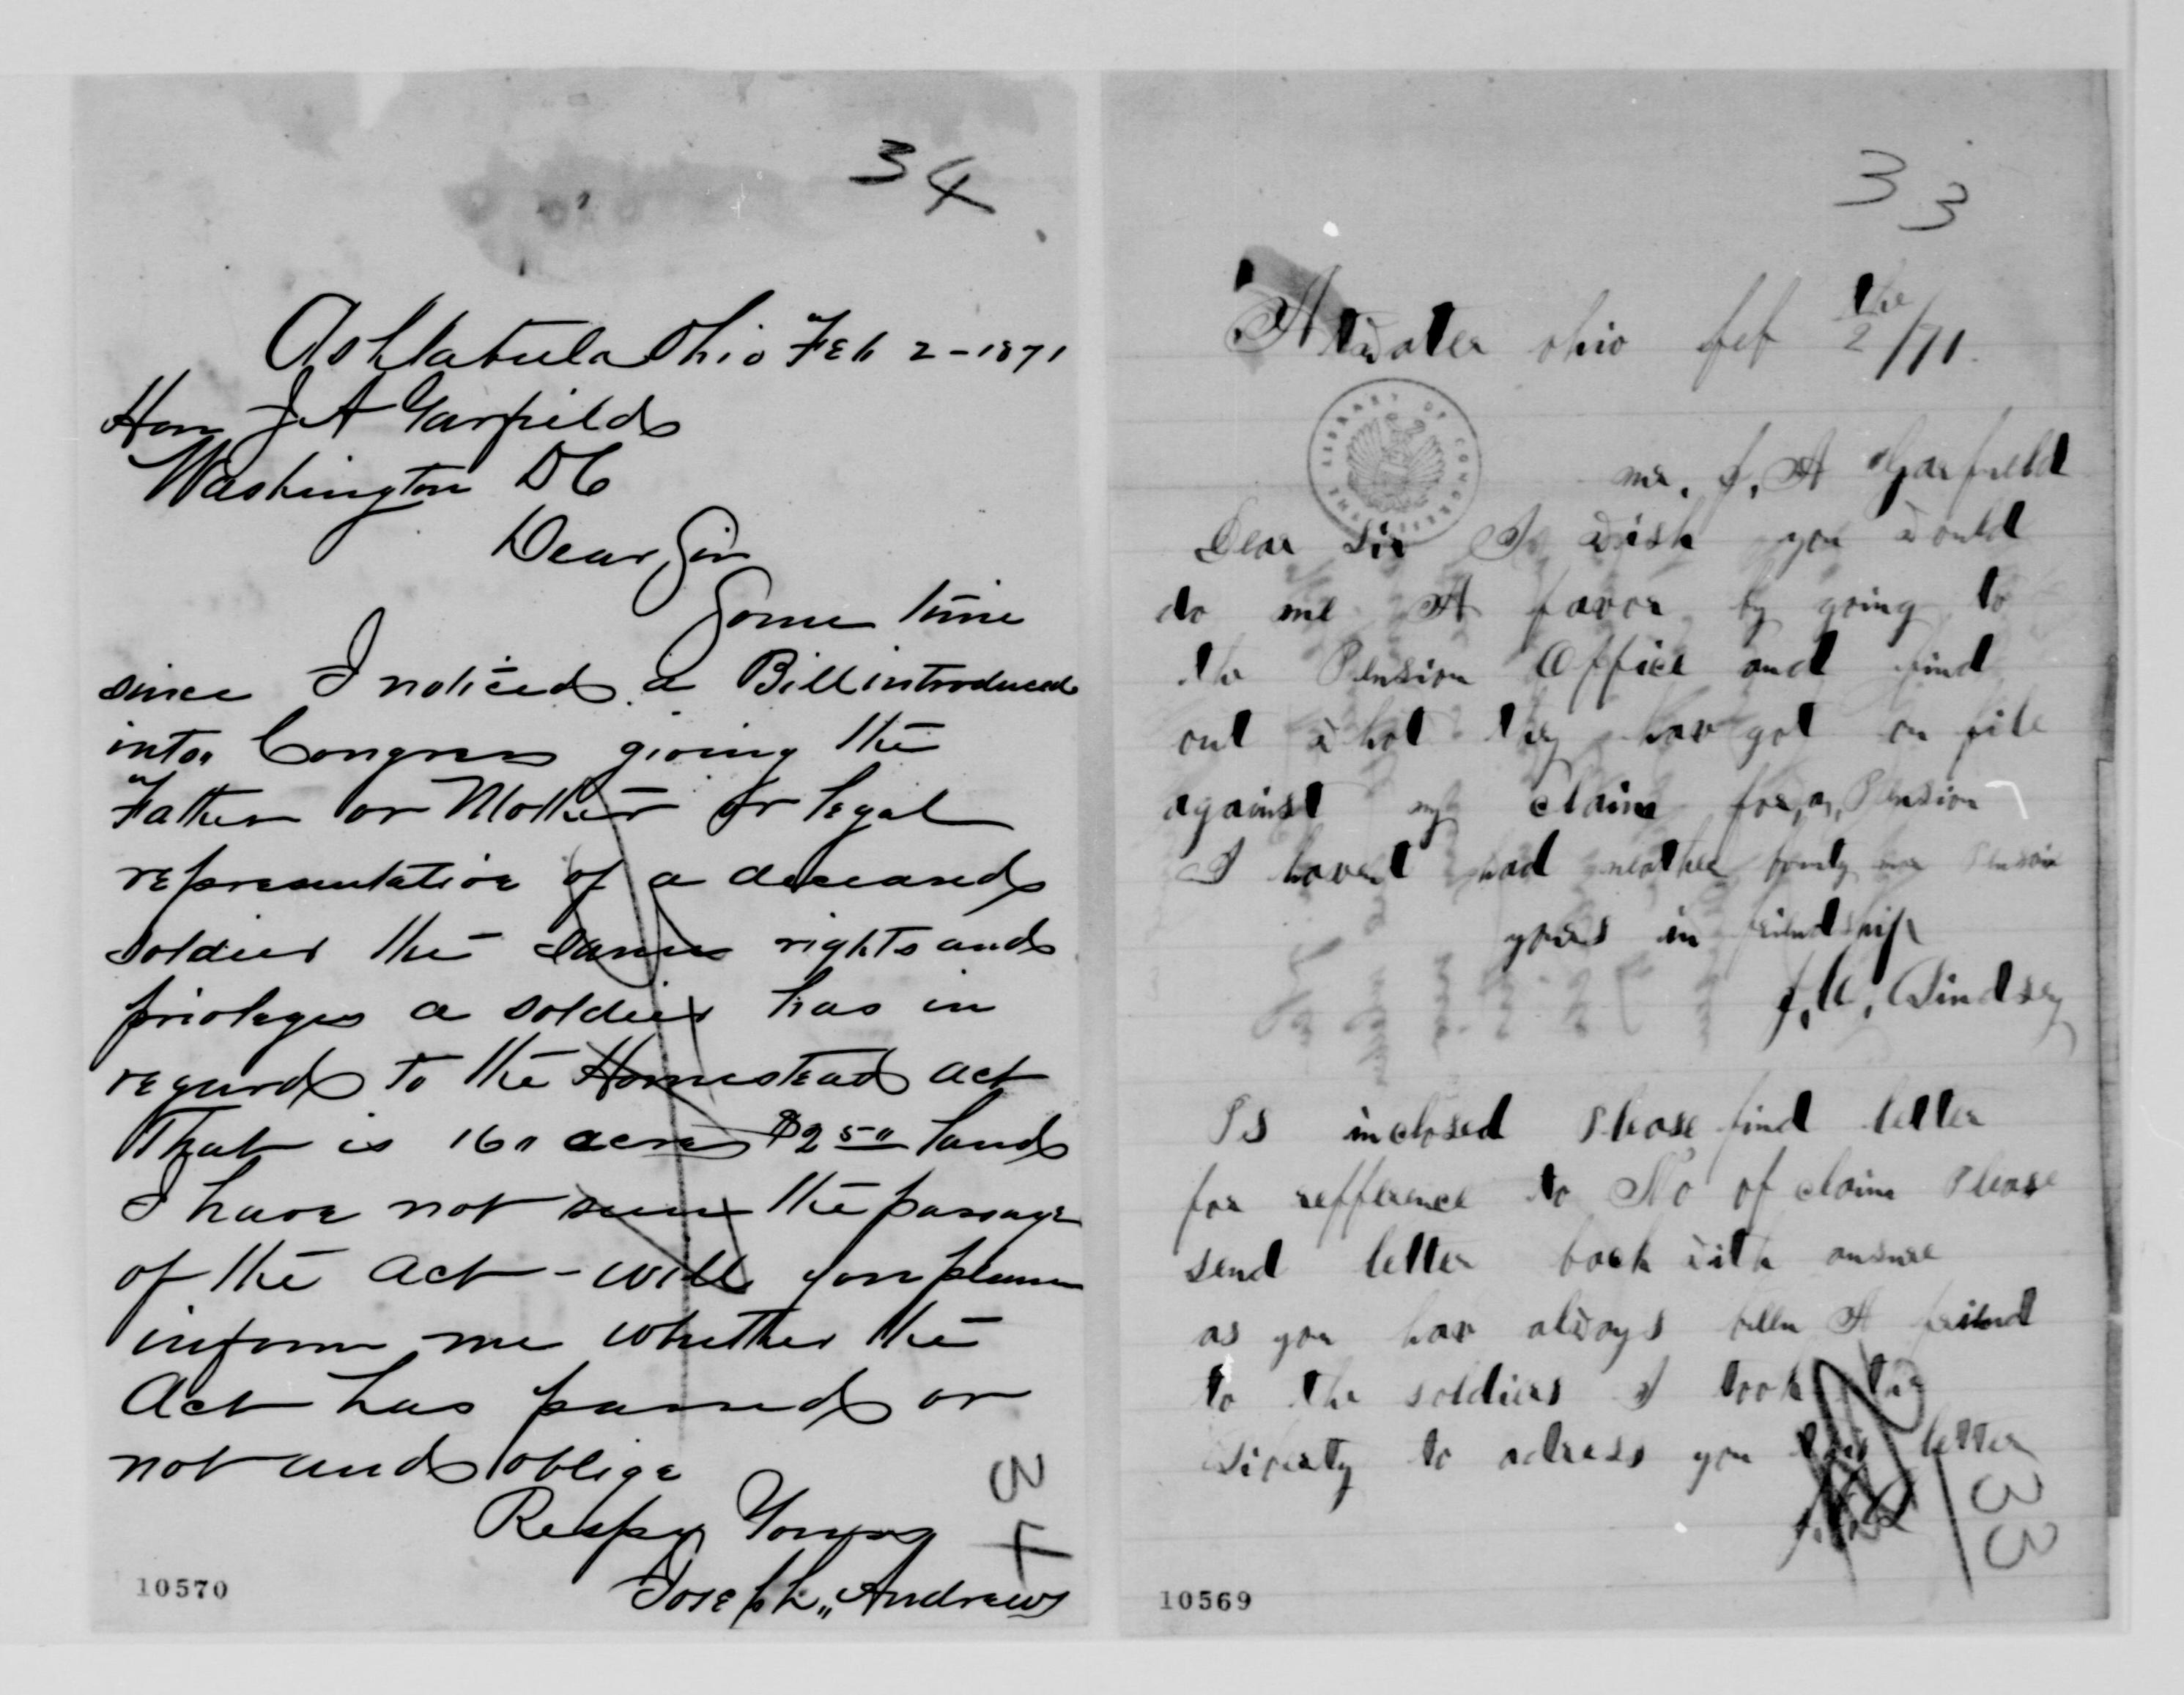 34
Ashtabula Ohio Feb 2-1871
Hon J A Garfield
Washington DC
Dear Sir
Some time
since I noticed a Bill introduced
into Congress giving the
Father or Mother or legal
representative of a deceased
soldier the same rights and
privleges a soldier has in
regard to the Homestead act
That is 160 acres $2.50 land
I have not seen the passage
of the Act - will you please
inform me whether the
Act has passed or
not and oblige
Respy Yours
Joseph Andrews
34
10570
33
Atwater ohio feb the 2/71.
THE LIBRARY OF CONGRESS
mr. J, A Garfield
Dear sir I wish you would
do me A favor by going to
the Pension Office and find
out what they hav got on file
against my claim for, a, Pension
I havent had neather bounty nor Pension
yours in friendship
J, C, Lindsey
PS inclosed Please find letter
for refference to No of claim Please
send letter back with answe
as you hav always been A friend
to the soldiers I took the
liberty to adress you this letter
33
10569